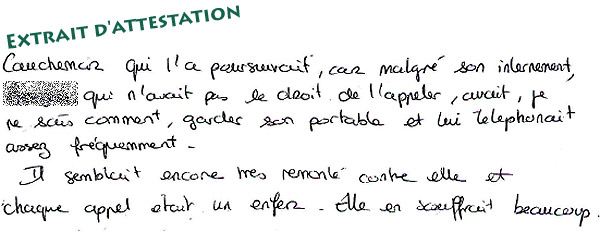 EXTRAIT D'ATTESTATION
Cauchemar qui l'a poursuivait, car malgré son internement,
qui n'avait pas le droit de l'appeler, avait, je
ne sais comment, garder son portable et lui telephonait
assez fréquemment.
Il semblait encore très remonté contre elle et
chaque appel etait un enfer. Elle en souffrait beaucoup.